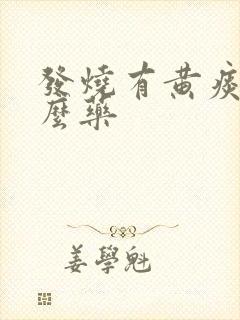 發燒有黃痰
麼藥
姜學魁